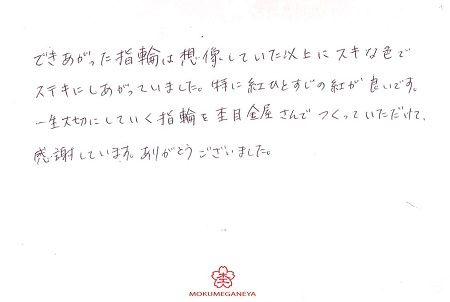 できあがった指輪は想像していた以上にスキな色で
ステキにしあがっていました。特に紅ひとすじの紅が良いです。
一生大切にしていく指輪を杢目金屋さんでつくっていただけて、
感謝しています。ありがとうございました。
杢
MOKUMEGANEYA